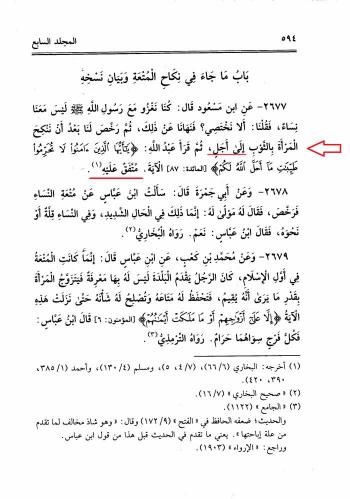 ٥٩٤ المجلد السابع
بَابُ مَا جَاءَ فِي نِكَاحِ الْمُتْعَةِ وَبَيَانِ نَسْخِهِ
٢٦٧٧- عَنِ ابْنِ مَسْعُودٍ قَالَ: كُنَّا نَغْزُو مَعَ رَسُولِ اللَّهِ ﷺ لَيْسَ مَعَنَا
نِسَاءٌ، فَقُلْنَا: أَلَا نَخْتَصِي؟ فَنَهَانَا عَنْ ذَلِكَ، ثُمَّ رَخَّصَ لَنَا بَعْدُ أَنْ نَنْكِحَ
الْمَرْأَةَ بِالثَّوْبِ إِلَى أَجَلٍ، ثُمَّ قَرَأَ عَبْدُ اللَّهِ: ﴿يَٰٓأَيُّهَا الَّذِينَ ءَامَنُوا لَا تُحَرِّمُوا
طَيِّبَٰتِ مَآ أَحَلَّ ٱللَّهُ لَكُمْ﴾ [المائدة: ٨٧] الْآيَةَ. مُتَّفَقٌ عَلَيْهِ(١).
٢٦٧٨- وَعَنْ أَبِي جَمْرَةَ قَالَ: سَأَلْتُ ابْنَ عَبَّاسٍ عَنْ مُتْعَةِ النِّسَاءِ
فَرَخَّصَ، فَقَالَ لَهُ مَوْلًى لَهُ: إِنَّمَا ذَلِكَ فِي الْحَالِ الشَّدِيدِ، وَفِي النِّسَاءِ قِلَّةٌ أَوْ
نَحْوَهُ، فَقَالَ ابْنُ عَبَّاسٍ: نَعَمْ. رَوَاهُ الْبُخَارِيُّ(٢).
٢٦٧٩- وَعَنْ مُحَمَّدِ بْنِ كَعْبٍ، عَنِ ابْنِ عَبَّاسٍ قَالَ: إِنَّمَا كَانَتِ الْمُتْعَةُ
فِي أَوَّلِ الْإِسْلَامِ، كَانَ الرَّجُلُ يَقْدَمُ الْبَلْدَةَ لَيْسَ لَهُ بِهَا مَعْرِفَةٌ فَيَتَزَوَّجُ الْمَرْأَةَ
بِقَدْرِ مَا يَرَى أَنَّهُ يُقِيمُ، فَتَحْفَظُ لَهُ مَتَاعَهُ وَتُصْلِحُ لَهُ شَأْنَهُ حَتَّى نَزَلَتْ هَذِهِ
الْآيَةُ ﴿إِلَّا عَلَىٰٓ أَزْوَٰجِهِمْ أَوْ مَا مَلَكَتْ أَيْمَٰنُهُمْ﴾ [المؤمنون: ٦] قَالَ ابْنُ عَبَّاسٍ:
فَكُلُّ فَرْجٍ سِوَاهُمَا حَرَامٌ. رَوَاهُ التِّرْمِذِيُّ(٣).
(١) أخرجه: البخاري (٦٦/٦)، (٤/٧، ٥)، ومسلم (١٣٠/٤)، وأحمد (٣٨٥/١،
٣٩٠، ٤٢٠).
(٢) «صحيح البخاري» (١٦/٧).
(٣) «الجامع» (١١٢٢).
والحديث؛ ضعفه الحافظ في «الفتح» (١٧٢/٩) وقال: «وهو شاذ مخالف لما تقدم
من علة إباحتها». يعني ما تقدم في الحديث قبل هذا من قول ابن عباس.
وراجع: «الإرواء» (١٩٠٣).